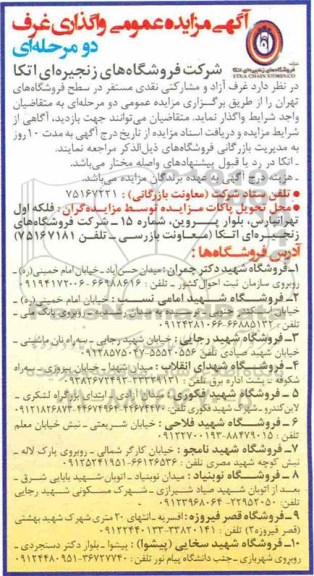 آگهی مزایده عمومی واگذاری غرف
دو مرحله‌ای
فروشگاه‌های زنجیره‌ای اتکا
ETKA CHAIN STORES.CO
شرکت فروشگاه‌های زنجیره‌ای اتکا
در نظر دارد غرف آزاد و مشارکتی نقدی مستقر در سطح فروشگاه‌های
تهران را از طریق برگزاری مزایده عمومی دو مرحله‌ای به متقاضیان
واجد شرایط واگذار نماید. متقاضیان می‌توانند جهت بازدید، آگاهی از
شرایط مزایده و دریافت اسناد مزایده از تاریخ درج آگهی به مدت ۱۰ روز
به مدیریت بازرگانی فروشگاه‌های ذیل‌الذکر مراجعه نمایند.
- اتکا در رد یا قبول پیشنهادهای واصله مختار می‌باشد.
- هزینه آگهی به عهده برندگان مزایده می‌باشد.
● تلفن ستاد شرکت (معاونت بازرگانی) : ۷۵۱۶۷۲۲۱
● محل تحویل پاکات مزایده توسط مزایده‌گران : فلکه اول
تهرانپارس، بلوار پروین، شماره ۱۵ – شرکت فروشگاه‌های
زنجیره‌ای اتکا (معاونت بازرسی – تلفن ۷۵۱۶۷۱۸۱)
آدرس فروشگاه‌ها :
۱- فروشگاه شهید دکتر چمران : میدان حسن‌آباد - خیابان امام خمینی (ره) -
روبروی سازمان ثبت احوال کشور - تلفن : ۶۶۹۸۸۶۱۶-۰۹۱۹۴۱۷۲۰۰۶
۲- فروشگاه شهید امامی نسب : خیابان امامی خمینی (ره) -
روبروی بانک ملی -
تلفن : ۶۶۸۸۵۱۳۲-۰۹۱۲۴۲۸۱۰۶۶
۳- فروشگاه شهید رجایی : خیابان شهید رجایی -
خیابان شهید صیادی تلفن : ۵۵۵۲۰۵۵۶-۰۹۱۲۸۵۷۵۰۴۷
۴- فروشگاه شهدای انقلاب : میدان شهدا - خیابان پیروزی - سه‌راه
شکوفه - پشت اداره برق تلفن : ۳۳۳۲۹۱۳۱-۰۹۳۸۲۶۷۲۴۹۳
۵ - فروشگاه شهید فکوری : ابتدای بزرگراه لشکری -
۶ - فروشگاه شهید فلاحی : خیابان شریعتی - نبش خیابان معلم
تلفن : ۸۸۴۷۹۰۱۵-۰۹۱۲۲۷۰۰۱۹۳
۷ - فروشگاه شهید نامجو : خیابان کارگر شمالی - روبروی پارک لاله -
نبش کوچه شهید مصری تلفن : ۶۶۱۲۶۵۳۶-۰۹۱۲۵۲۴۱۹۵۱
۸ - فروشگاه نوبنیاد : میدان نوبنیاد - اتوبان شهید بابایی شرق -
بعد از اتوبان شهید صیاد شیرازی - شهرک مسکونی شهید رجایی
تلفن : ۲۲۹۵۲۰۵۰-۰۹۱۲۳۹۶۸۰۶۴
۹ - فروشگاه قصر فیروزه : افسریه - انتهای ۲۰ متری شهرک شهید بهشتی
(قصر فیروزه ۲) تلفن : ۳۳۸۲۰۱۴۱-۰۹۱۲۲۴۴۰۱۳۳
۱۰ - فروشگاه شهید سخایی (پیشوا) : پیشوا - بلوار دکتر دستجردی -
روبروی شهربازی - جنب دانشگاه پیام نور تلفن : ۳۶۷۲۷۷۴۰-۰۹۱۲۴۴۸۰۹۵۱